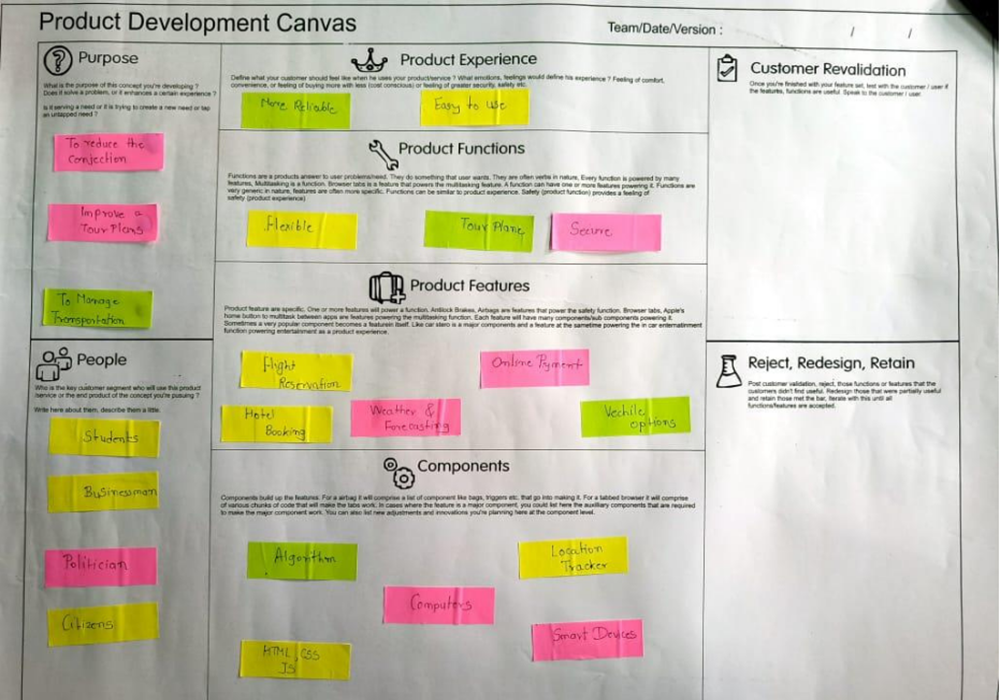 Product Development Canvas
Team/Date/Version : / /
Purpose
What is the purpose of this concept you're developing ?
Does it solve a problem, or it enhances a certain experience ?
Is it serving a need or it is trying to create a new need or tap
an untapped need ?
To reduce the
Conjection
Improve a
Tour Plans
To Manage
Transportation
People
Who is the key customer segment who will use this product
service or the end product of the concept you're pursuing ?
Write here about them, describe them a little.
Students
Businessman
Politician
Citizens
Product Experience
Define what your customer should feel like when he uses your product/service ? What emotions, feelings would define his experience ? Feeling of comfort,
convenience, or feeling of buying more with less (cost conscious) or feeling of greater security, safety etc.
More Reliable
Easy to Use
Product Functions
Functions are a products answer to user problems/need. They do something that user wants. They are often verbs in nature. Every function is powered by many
features, Multitasking is a function. Browser tabs is a feature that powers the multitasking feature. A function can have one or more features powering it. Functions are
very generic in nature, features are often more specific. Functions can be similar to product experience. Safety (product function) provides a feeling of
safety (product experience)
Flexible
Tour Plans
Secure
Product Features
Product feature are specific. One or more features will power a function. Antilock Brakes, Airbags are features that power the safety function. Browser tabs, Apple's
home button to multitask between apps are features powering the multitasking function. Each feature will have many components/sub components powering it.
Sometimes a very popular component becomes a feature in itself. Like car stero is a major components and a feature at the sametime powering the in car entertainment
function powering entertainment as a product experience.
Flight
Reservation
Online Pyment
Hotel
Booking
Weather &
Forecasting
Vechile
Options
Components
Components build up the features. For a airbag it will comprise a list of component like bags, triggers etc. that go into making it. For a tabbed browser it will comprise
of various chunks of code that will make the tabs work. In cases where the feature is a major component, you could list here the auxiliary components that are required
to make the major component work. You can also list new adjustments and innovations you're planning here at the component level.
Algorithm
Location
Tracker
Computers
Smart Devices
HTML, CSS
JS
Customer Revalidation
Once you're finished with your feature set, test with the customer / user if
the features, functions are useful. Speak to the customer / user.
Reject, Redesign, Retain
Post customer validation, reject, those functions or features that the
customers didn't find useful. Redesign those that were partially useful
and retain those met the bar. Iterate with this until all
functions/features are accepted.